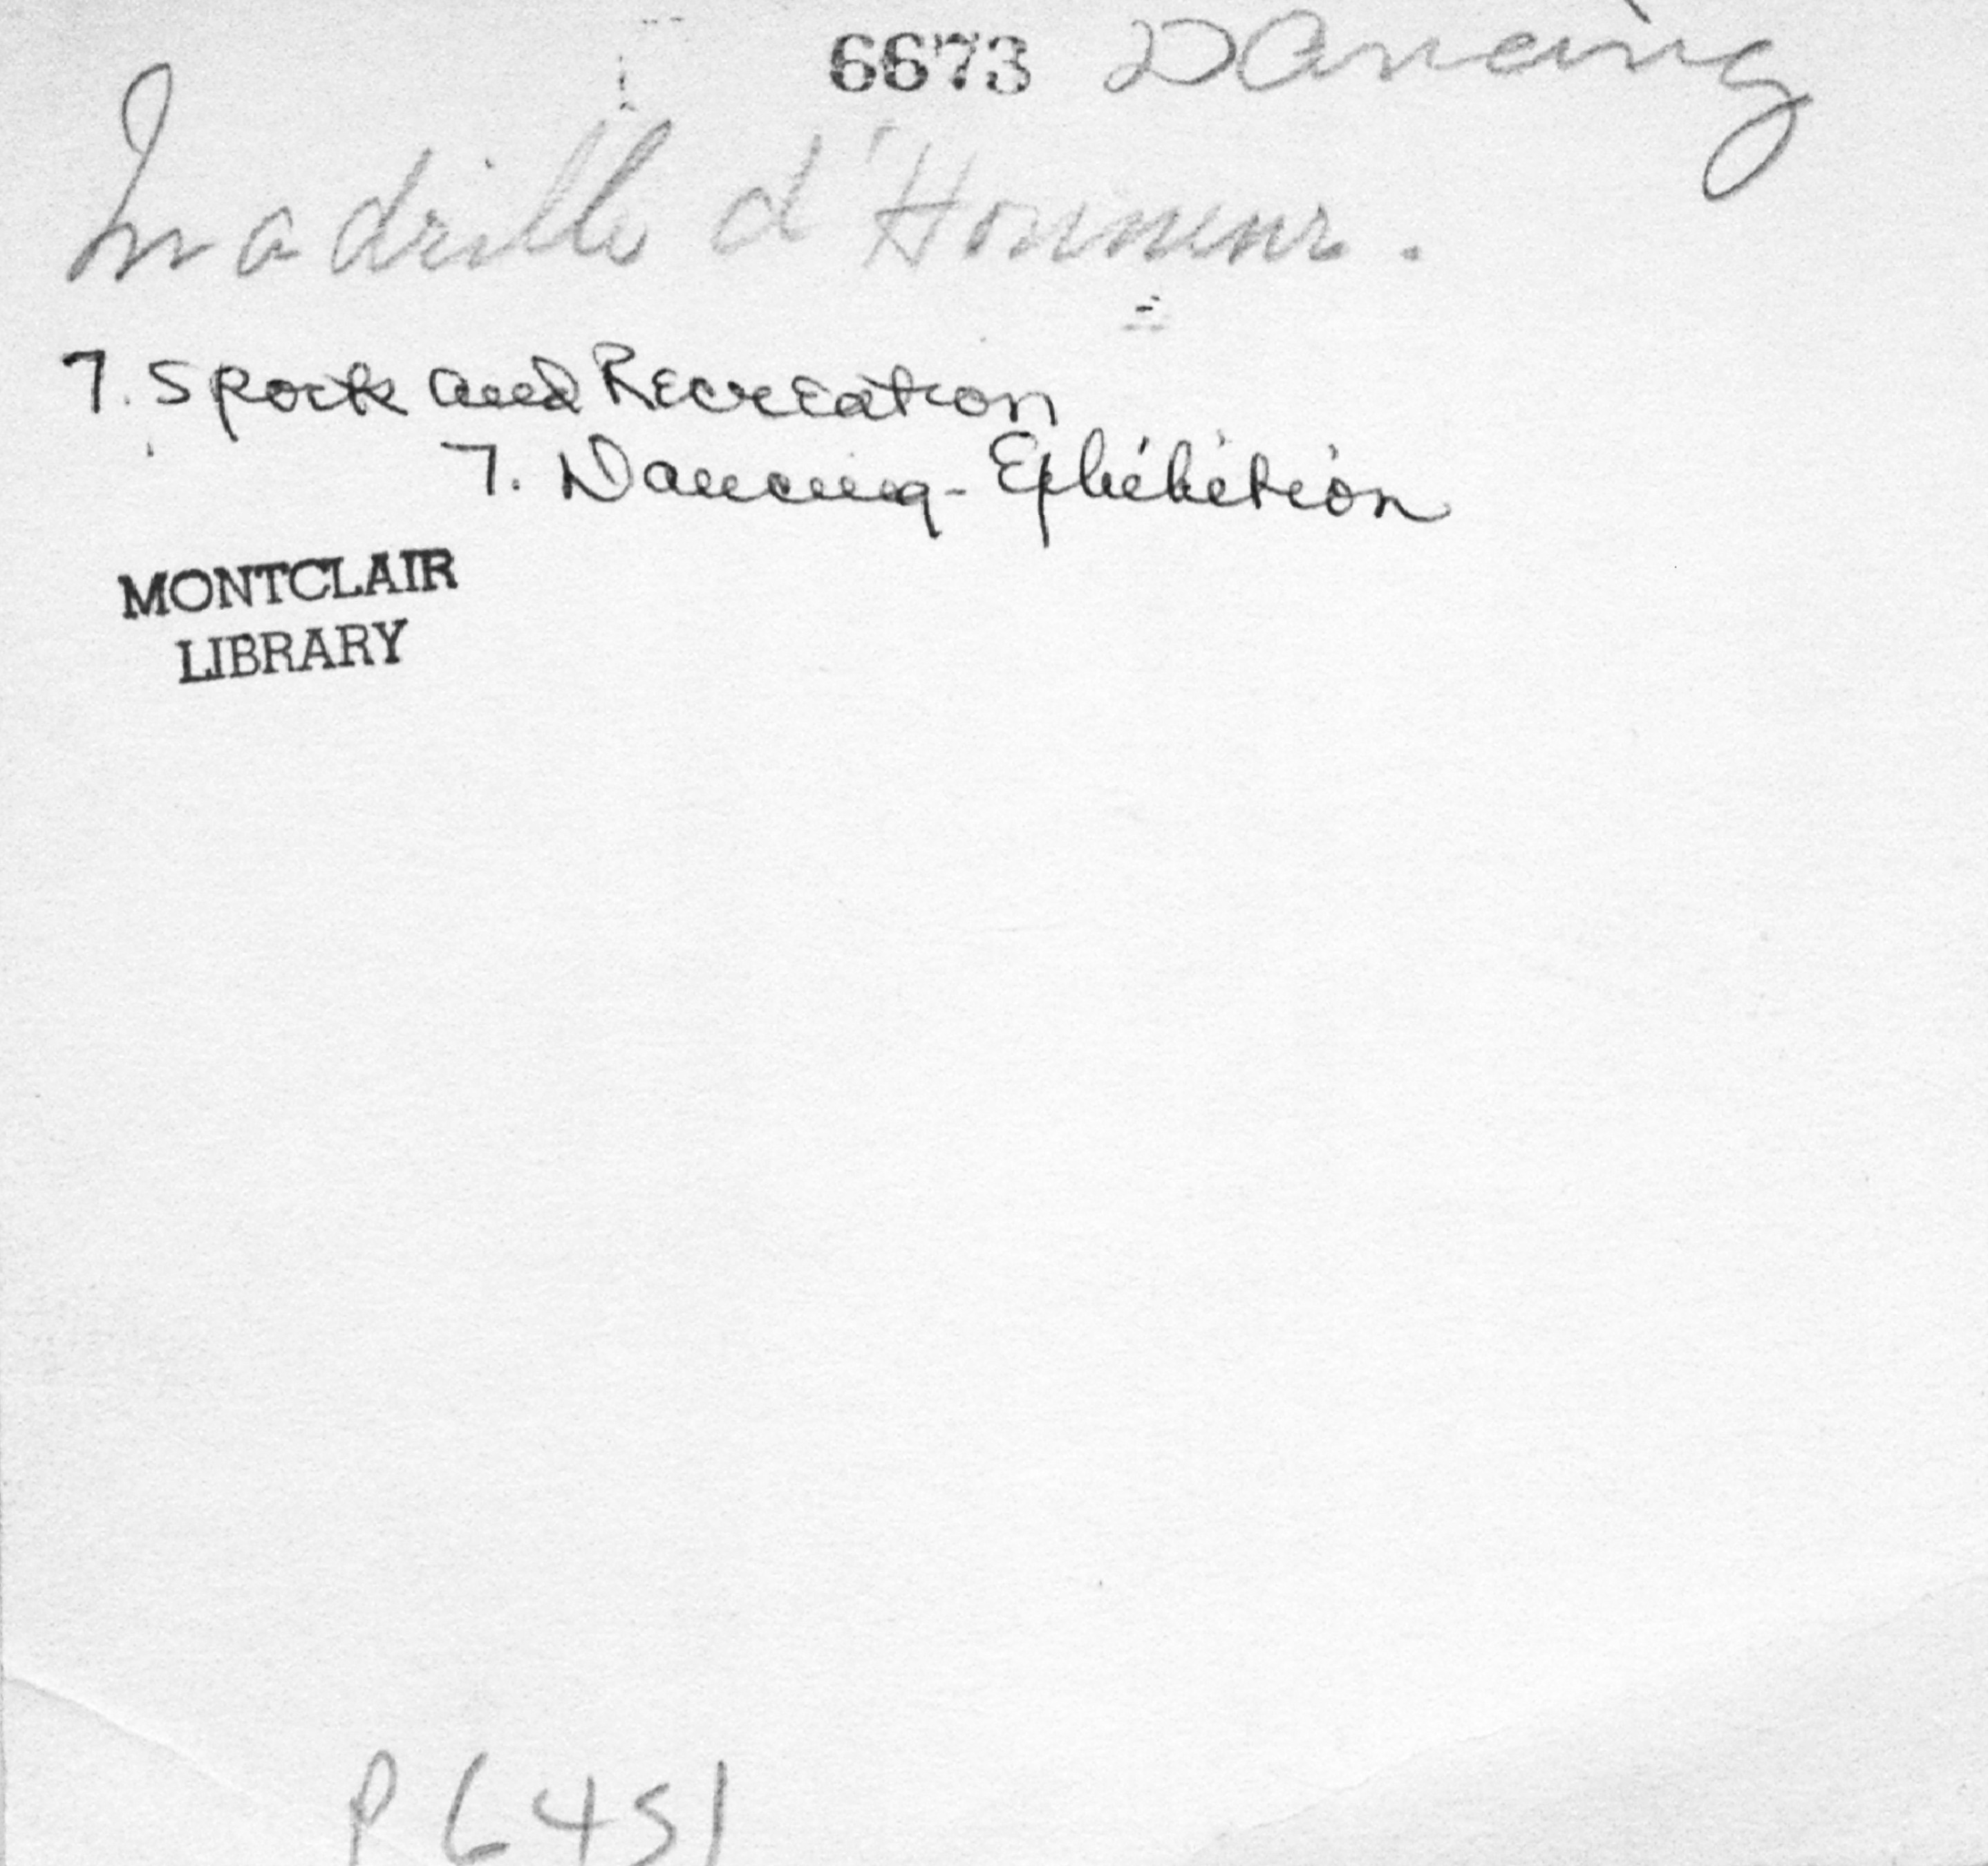 6673 Dancing
Quadrille d'Honneur.
7. Sports and Recreation
7. Dancing - Exhibition
MONTCLAIR
LIBRARY
P6451